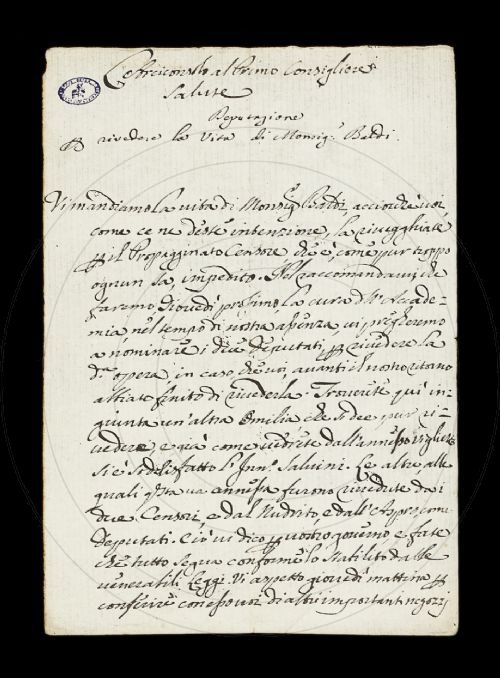 L'Arciconsolo al Primo Consigliere
Salute
Deputazione
P rivedere la Vita di Monsig.r Baldi.
Vi mandiamo la vita di Monsig.r Baldi, acciocchè voi
come ce ne deste intenzione, la rivegghiate
p il Propagginato Censore, che è, come pur troppo
ognun sa, impedito. Nel raccomandarvi che
faremo giovedì prossimo la cura d.ll'Accade-
mia nel tempo di nostra assenza vi pregheremo
a nominare i due Deputati p rivedere la
d.a opera in caso che voi, avanti il nostro ritorno
abbiate finito di rivederla. Troverete qui in-
giunta un'altra Omilia che si dee pur ri-
vedere, e già come vedrete dall'annesso viglietto
si è sodisfatto l'Inn.o Salvini. Le altre, alle
quali q.sta va annessa furono rivedute da i
due Censori, e dal Nudrito, e dall'Approssimato
Deputati. Ciò vi dico p vostro governo, e fate
che tutto segua conforme lo Statuto dalle
venerabili Leggi. Vi aspetto giovedì mattina p
conferire con esso voi di altri importanti negozzj